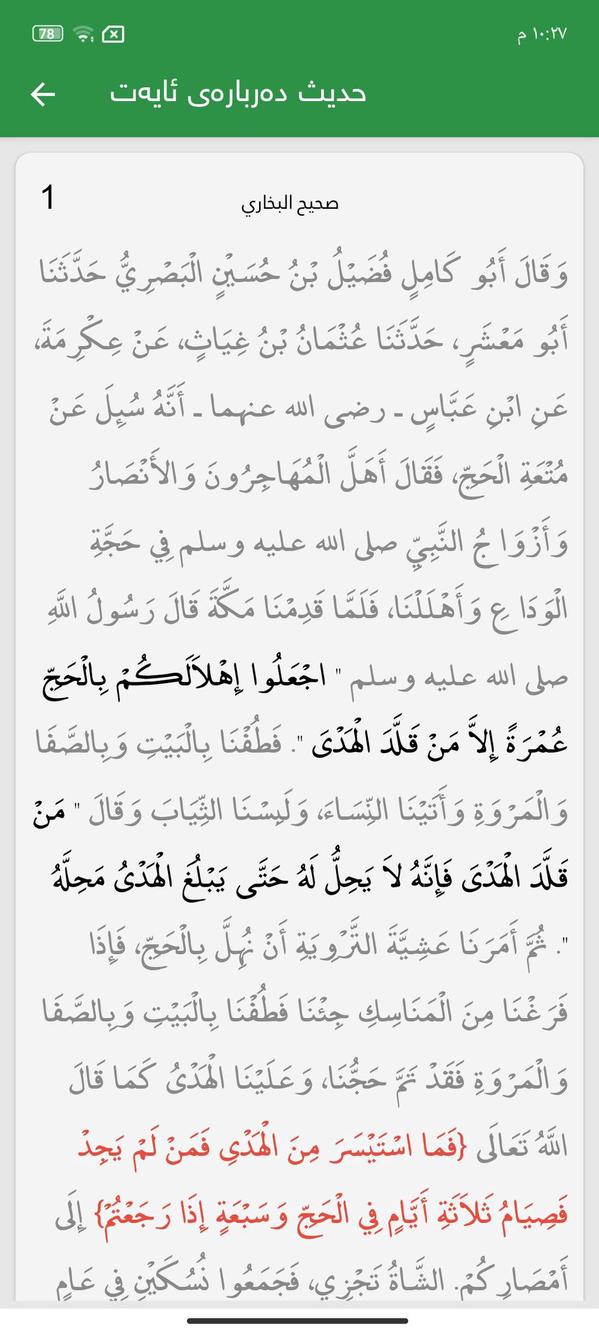 78
١٠:٢٧ م
حدیث دەربارەی ئایەت
1
صحيح البخاري
وَقَالَ أَبُو كَامِلٍ فُضَيْلُ بْنُ حُسَيْنٍ الْبَصْرِيُّ حَدَّثَنَا
أَبُو مَعْشَرٍ، حَدَّثَنَا عُثْمَانُ بْنُ غِيَاثٍ، عَنْ عِكْرِمَةَ،
عَنِ ابْنِ عَبَّاسٍ ـ رضى الله عنهما ـ أَنَّهُ سُئِلَ عَنْ
مُتْعَةِ الْحَجِّ، فَقَالَ أَهَلَّ الْمُهَاجِرُونَ وَالأَنْصَارُ
وَأَزْوَاجُ النَّبِيِّ صلى الله عليه وسلم فِي حَجَّةِ
الْوَدَاعِ وَأَهْلَلْنَا، فَلَمَّا قَدِمْنَا مَكَّةَ قَالَ رَسُولُ اللَّهِ
صلى الله عليه وسلم " اجْعَلُوا إِهْلاَلَكُمْ بِالْحَجِّ
عُمْرَةً إِلاَّ مَنْ قَلَّدَ الْهَدْىَ ". فَطُفْنَا بِالْبَيْتِ وَبِالصَّفَا
وَالْمَرْوَةِ وَأَتَيْنَا النِّسَاءَ، وَلَبِسْنَا الثِّيَابَ وَقَالَ " مَنْ
قَلَّدَ الْهَدْىَ فَإِنَّهُ لاَ يَحِلُّ لَهُ حَتَّى يَبْلُغَ الْهَدْىُ مَحِلَّهُ
". ثُمَّ أَمَرَنَا عَشِيَّةَ التَّرْوِيَةِ أَنْ نُهِلَّ بِالْحَجِّ، فَإِذَا
فَرَغْنَا مِنَ الْمَنَاسِكِ جِئْنَا فَطُفْنَا بِالْبَيْتِ وَبِالصَّفَا
وَالْمَرْوَةِ فَقَدْ تَمَّ حَجُّنَا، وَعَلَيْنَا الْهَدْىُ كَمَا قَالَ
اللَّهُ تَعَالَى {فَمَا اسْتَيْسَرَ مِنَ الْهَدْىِ فَمَنْ لَمْ يَجِدْ
فَصِيَامُ ثَلاَثَةِ أَيَّامٍ فِي الْحَجِّ وَسَبْعَةٍ إِذَا رَجَعْتُمْ} إِلَى
أَمْصَارِكُمْ. الشَّاةُ تَجْزِي، فَجَمَعُوا نُسُكَيْنِ فِي عَامٍ